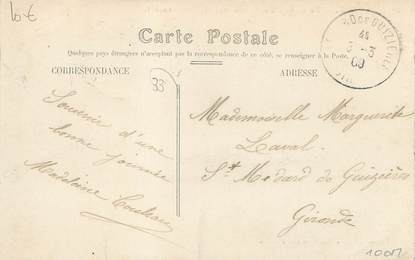 10€
Carte Postale
Quelques pays étrangers n'acceptant pas la correspondance de ce côté, se renseigner à la Poste.
CORRESPONDANCE
ADRESSE
33
Souvenir d'une
bonne journée
Madeleine
Mademoiselle Marguerite
Laval
St Medard de Guizières
Gironde